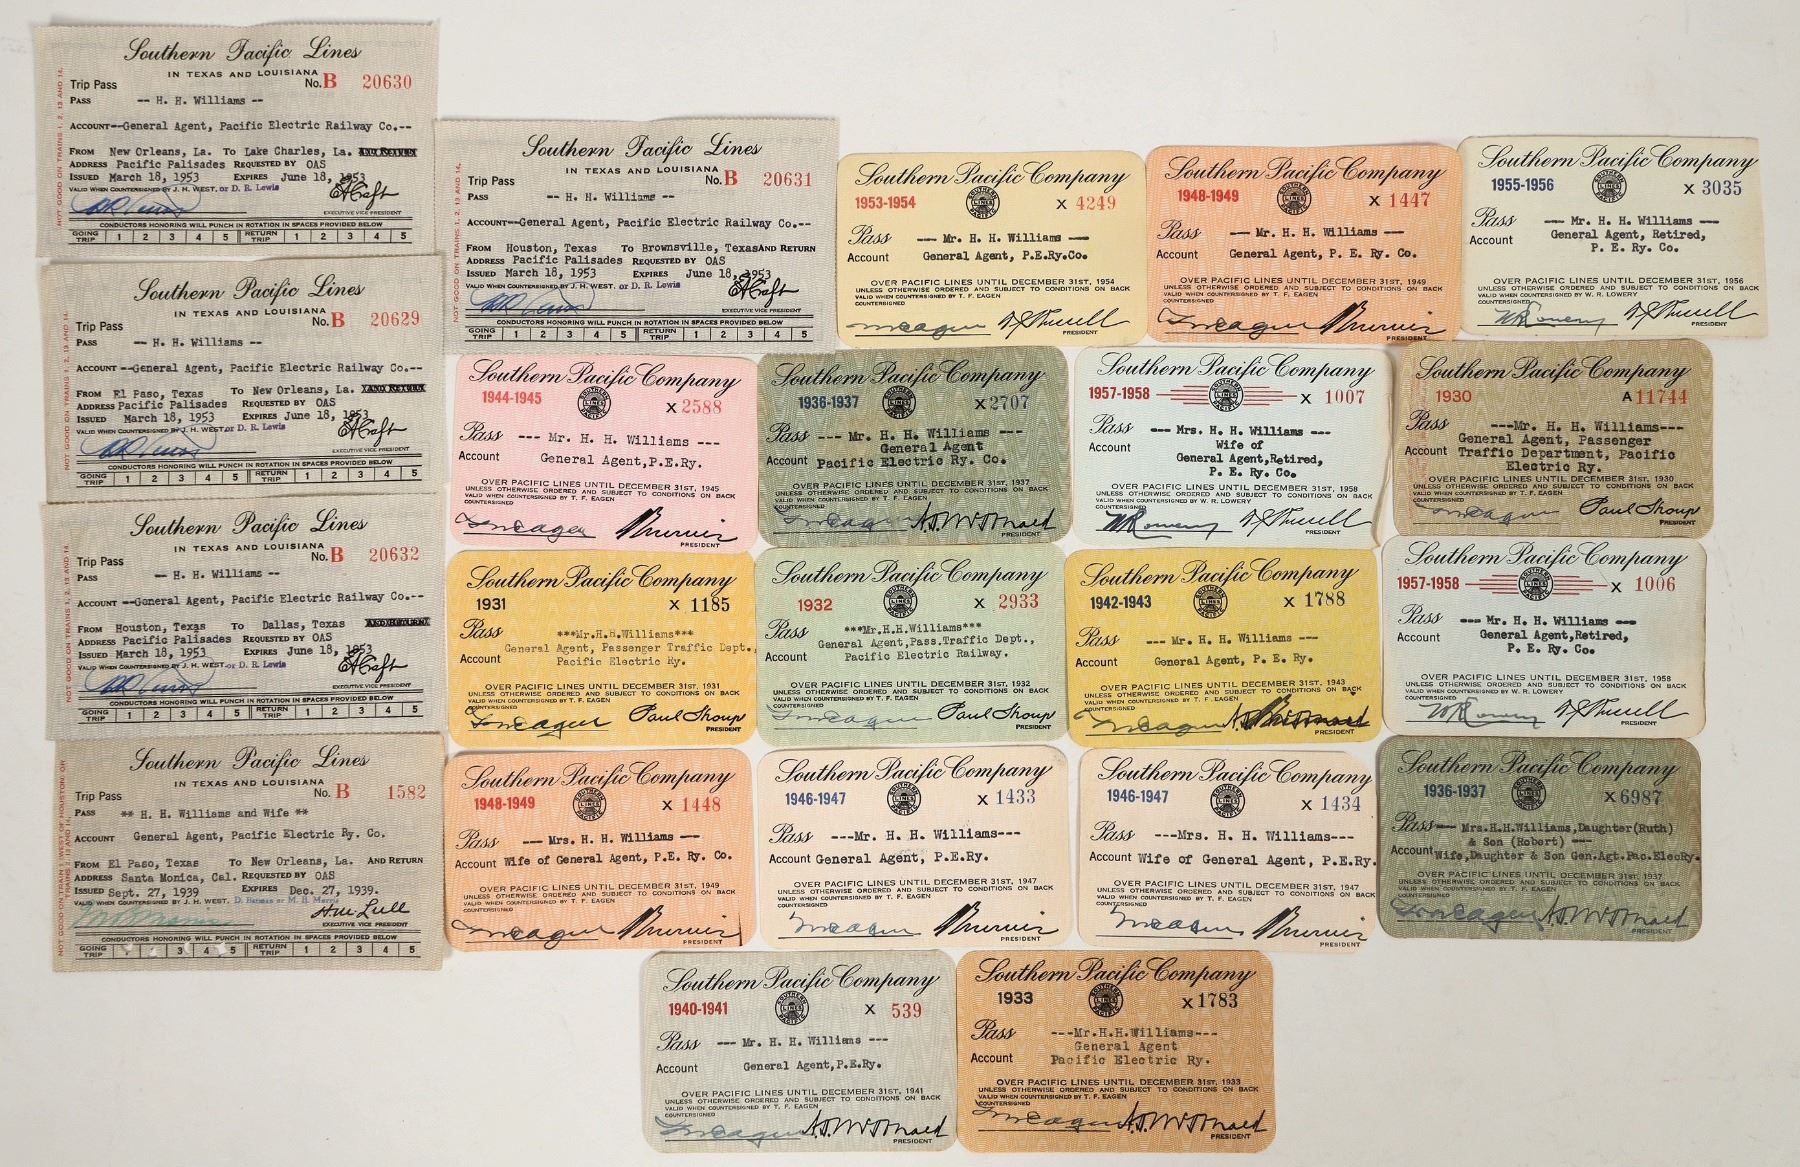 Southern Pacific Lines
IN TEXAS AND LOUISIANA
Trip Pass No. B 20630
PASS -- H. H. Williams --
ACCOUNT--General Agent, Pacific Electric Railway Co.--
FROM New Orleans, La. TO Lake Charles, La. AND RETURN
ADDRESS Pacific Palisades REQUESTED BY OAS
ISSUED March 18, 1953 EXPIRES June 18, 1953
VALID WHEN COUNTERSIGNED BY J. H. WEST, or D. R. Lewis
EXECUTIVE VICE PRESIDENT
CONDUCTORS HONORING WILL PUNCH IN ROTATION IN SPACES PROVIDED BELOW
GOING TRIP 1 2 3 4 5 RETURN TRIP 1 2 3 4 5
NOT GOOD ON TRAINS 1, 2, 13 AND 14.
Southern Pacific Lines
IN TEXAS AND LOUISIANA
Trip Pass No. B 20629
PASS -- H. H. Williams --
ACCOUNT --General Agent, Pacific Electric Railway Co.--
FROM El Paso, Texas TO New Orleans, La. AND RETURN
ADDRESS Pacific Palisades REQUESTED BY OAS
ISSUED March 18, 1953 EXPIRES June 18, 1953
VALID WHEN COUNTERSIGNED BY J. H. WEST, or D. R. Lewis
EXECUTIVE VICE PRESIDENT
CONDUCTORS HONORING WILL PUNCH IN ROTATION IN SPACES PROVIDED BELOW
GOING TRIP 1 2 3 4 5 RETURN TRIP 1 2 3 4 5
NOT GOOD ON TRAINS 1, 2, 13 AND 14.
Southern Pacific Lines
IN TEXAS AND LOUISIANA
Trip Pass No. B 20632
PASS -- H. H. Williams --
ACCOUNT --General Agent, Pacific Electric Railway Co.--
FROM Houston, Texas TO Dallas, Texas AND RETURN
ADDRESS Pacific Palisades REQUESTED BY OAS
ISSUED March 18, 1953 EXPIRES June 18, 1953
VALID WHEN COUNTERSIGNED BY J. H. WEST, or D. R. Lewis
EXECUTIVE VICE PRESIDENT
CONDUCTORS HONORING WILL PUNCH IN ROTATION IN SPACES PROVIDED BELOW
GOING TRIP 1 2 3 4 5 RETURN TRIP 1 2 3 4 5
NOT GOOD ON TRAINS 1, 2, 13 AND 14.
Southern Pacific Lines
IN TEXAS AND LOUISIANA
Trip Pass No. B 1582
PASS ** H. H. Williams and Wife **
ACCOUNT General Agent, Pacific Electric Ry. Co.
FROM El Paso, Texas TO New Orleans, La. AND RETURN
ADDRESS Santa Monica, Cal. REQUESTED BY OAS
ISSUED Sept. 27, 1939 EXPIRES Dec. 27, 1939.
VALID WHEN COUNTERSIGNED BY J. H. WEST, or M. B. Morris
H M Lull
EXECUTIVE VICE PRESIDENT
CONDUCTORS HONORING WILL PUNCH IN ROTATION IN SPACES PROVIDED BELOW
GOING TRIP 3 4 5 RETURN TRIP 1 2 3 4 5
NOT GOOD ON TRAIN 1 (WEST OF HOUSTON) OR
ON TRAINS 2, 13 AND 14.
Southern Pacific Lines
IN TEXAS AND LOUISIANA
Trip Pass No. B 20631
PASS -- H. H. Williams --
ACCOUNT--General Agent, Pacific Electric Railway Co.--
FROM Houston, Texas TO Brownsville, Texas AND RETURN
ADDRESS Pacific Palisades REQUESTED BY OAS
ISSUED March 18, 1953 EXPIRES June 18, 1953
VALID WHEN COUNTERSIGNED BY J. H. WEST, or D. R. Lewis
EXECUTIVE VICE PRESIDENT
CONDUCTORS HONORING WILL PUNCH IN ROTATION IN SPACES PROVIDED BELOW
GOING TRIP 1 2 3 4 5 RETURN TRIP 1 2 3 4 5
NOT GOOD ON TRAINS 1, 2, 13 AND 14.
Southern Pacific Company
1953-1954 SOUTHERN PACIFIC LINES X 4249
Pass --- Mr. H. H. Williams ---
Account General Agent, P.E.Ry.Co.
OVER PACIFIC LINES UNTIL DECEMBER 31ST, 1954
UNLESS OTHERWISE ORDERED AND SUBJECT TO CONDITIONS ON BACK
VALID WHEN COUNTERSIGNED BY T. F. EAGEN
COUNTERSIGNED
PRESIDENT
Southern Pacific Company
1948-1949 SOUTHERN PACIFIC LINES X 1447
Pass --- Mr. H. H. Williams ---
Account General Agent, P. E. Ry. Co.
OVER PACIFIC LINES UNTIL DECEMBER 31ST, 1949
UNLESS OTHERWISE ORDERED AND SUBJECT TO CONDITIONS ON BACK
VALID WHEN COUNTERSIGNED BY T. F. EAGEN
COUNTERSIGNED
PRESIDENT
Southern Pacific Company
1955-1956 SOUTHERN PACIFIC LINES X 3035
Pass --- Mr. H. H. Williams ---
Account General Agent, Retired,
P. E. Ry. Co.
OVER PACIFIC LINES UNTIL DECEMBER 31ST, 1956
UNLESS OTHERWISE ORDERED AND SUBJECT TO CONDITIONS ON BACK
VALID WHEN COUNTERSIGNED BY W. R. LOWERY
COUNTERSIGNED
PRESIDENT
Southern Pacific Company
1944-1945 SOUTHERN PACIFIC LINES X 2588
Pass --- Mr. H. H. Williams ---
Account General Agent,P.E.Ry.
OVER PACIFIC LINES UNTIL DECEMBER 31ST, 1945
UNLESS OTHERWISE ORDERED AND SUBJECT TO CONDITIONS ON BACK
VALID WHEN COUNTERSIGNED BY T. F. EAGEN
COUNTERSIGNED
PRESIDENT
Southern Pacific Company
1936-1937 SOUTHERN PACIFIC LINES X 2707
Pass --- Mr. H. H. Williams ---
General Agent
Account Pacific Electric Ry. Co.
OVER PACIFIC LINES UNTIL DECEMBER 31ST, 1937
UNLESS OTHERWISE ORDERED AND SUBJECT TO CONDITIONS ON BACK
VALID WHEN COUNTERSIGNED BY T. F. EAGEN
COUNTERSIGNED
PRESIDENT
Southern Pacific Company
1957-1958 SOUTHERN PACIFIC LINES X 1007
Pass --- Mrs. H. H. Williams ---
Account Wife of
General Agent,Retired,
P. E. Ry. Co.
OVER PACIFIC LINES UNTIL DECEMBER 31ST, 1958
UNLESS OTHERWISE ORDERED AND SUBJECT TO CONDITIONS ON BACK
VALID WHEN COUNTERSIGNED BY W. R. LOWERY
COUNTERSIGNED
PRESIDENT
Southern Pacific Company
1930 A 11744
Pass ---Mr. H. H. Williams---
General Agent, Passenger
Account Traffic Department, Pacific
Electric Ry.
OVER PACIFIC LINES UNTIL DECEMBER 31ST, 1930
UNLESS OTHERWISE ORDERED AND SUBJECT TO CONDITIONS ON BACK
VALID WHEN COUNTERSIGNED BY T. F. EAGEN
COUNTERSIGNED
Paul Shoup
PRESIDENT
Southern Pacific Company
1931 X 1185
Pass ***Mr.H.H.Williams***
General Agent, Passenger Traffic Dept.,
Account Pacific Electric Ry.
OVER PACIFIC LINES UNTIL DECEMBER 31ST, 1931
UNLESS OTHERWISE ORDERED AND SUBJECT TO CONDITIONS ON BACK
VALID WHEN COUNTERSIGNED BY T. F. EAGEN
COUNTERSIGNED
Paul Shoup
PRESIDENT
Southern Pacific Company
1932 SOUTHERN PACIFIC LINES X 2933
Pass ***Mr.H.H.Williams***
General Agent,Pass.Traffic Dept.,
Account Pacific Electric Railway.
OVER PACIFIC LINES UNTIL DECEMBER 31ST, 1932
UNLESS OTHERWISE ORDERED AND SUBJECT TO CONDITIONS ON BACK
VALID WHEN COUNTERSIGNED BY T. F. EAGEN
COUNTERSIGNED
Paul Shoup
PRESIDENT
Southern Pacific Company
1942-1943 SOUTHERN PACIFIC LINES X 1788
Pass --- Mr. H. H. Williams ---
Account General Agent, P. E. Ry.
OVER PACIFIC LINES UNTIL DECEMBER 31ST, 1943
UNLESS OTHERWISE ORDERED AND SUBJECT TO CONDITIONS ON BACK
VALID WHEN COUNTERSIGNED BY T. F. EAGEN
COUNTERSIGNED
PRESIDENT
Southern Pacific Company
1957-1958 SOUTHERN PACIFIC LINES X 1006
Pass --- Mr. H. H. Williams ---
Account General Agent,Retired,
P. E. Ry. Co.
OVER PACIFIC LINES UNTIL DECEMBER 31ST, 1958
UNLESS OTHERWISE ORDERED AND SUBJECT TO CONDITIONS ON BACK
VALID WHEN COUNTERSIGNED BY W. R. LOWERY
COUNTERSIGNED
PRESIDENT
Southern Pacific Company
1948-1949 SOUTHERN PACIFIC LINES X 1448
Pass --- Mrs. H. H. Williams ---
Account Wife of General Agent, P.E. Ry. Co.
OVER PACIFIC LINES UNTIL DECEMBER 31ST, 1949
UNLESS OTHERWISE ORDERED AND SUBJECT TO CONDITIONS ON BACK
VALID WHEN COUNTERSIGNED BY T. F. EAGEN
COUNTERSIGNED
PRESIDENT
Southern Pacific Company
1946-1947 SOUTHERN PACIFIC LINES X 1433
Pass ---Mr. H. H. Williams---
Account General Agent, P.E.Ry.
OVER PACIFIC LINES UNTIL DECEMBER 31ST, 1947
UNLESS OTHERWISE ORDERED AND SUBJECT TO CONDITIONS ON BACK
VALID WHEN COUNTERSIGNED BY T. F. EAGEN
COUNTERSIGNED
PRESIDENT
Southern Pacific Company
1946-1947 SOUTHERN PACIFIC LINES X 1434
Pass ---Mrs. H. H. Williams---
Account Wife of General Agent, P.E.Ry.
OVER PACIFIC LINES UNTIL DECEMBER 31ST, 1947
UNLESS OTHERWISE ORDERED AND SUBJECT TO CONDITIONS ON BACK
VALID WHEN COUNTERSIGNED BY T. F. EAGEN
COUNTERSIGNED
PRESIDENT
Southern Pacific Company
1936-1937 SOUTHERN PACIFIC LINES X 6987
Pass--- Mrs.H.H.Williams,Daughter(Ruth)
& Son (Robert) ---
Account Wife,Daughter & Son Gen.Agt.Pac.ElecRy.
OVER PACIFIC LINES UNTIL DECEMBER 31ST, 1937
UNLESS OTHERWISE ORDERED AND SUBJECT TO CONDITIONS ON BACK
VALID WHEN COUNTERSIGNED BY T. F. EAGEN
COUNTERSIGNED
PRESIDENT
Southern Pacific Company
1940-1941 SOUTHERN PACIFIC LINES X 539
Pass --- Mr. H. H. Williams ---
Account General Agent,P.E.Ry.
OVER PACIFIC LINES UNTIL DECEMBER 31ST, 1941
UNLESS OTHERWISE ORDERED AND SUBJECT TO CONDITIONS ON BACK
VALID WHEN COUNTERSIGNED BY T. F. EAGEN
COUNTERSIGNED
PRESIDENT
Southern Pacific Company
1933 SOUTHERN PACIFIC LINES X 1783
Pass ---Mr.H.H.Williams---
General Agent
Account Pacific Electric Ry.
OVER PACIFIC LINES UNTIL DECEMBER 31ST, 1933
UNLESS OTHERWISE ORDERED AND SUBJECT TO CONDITIONS ON BACK
VALID WHEN COUNTERSIGNED BY T. F. EAGEN
COUNTERSIGNED
PRESIDENT